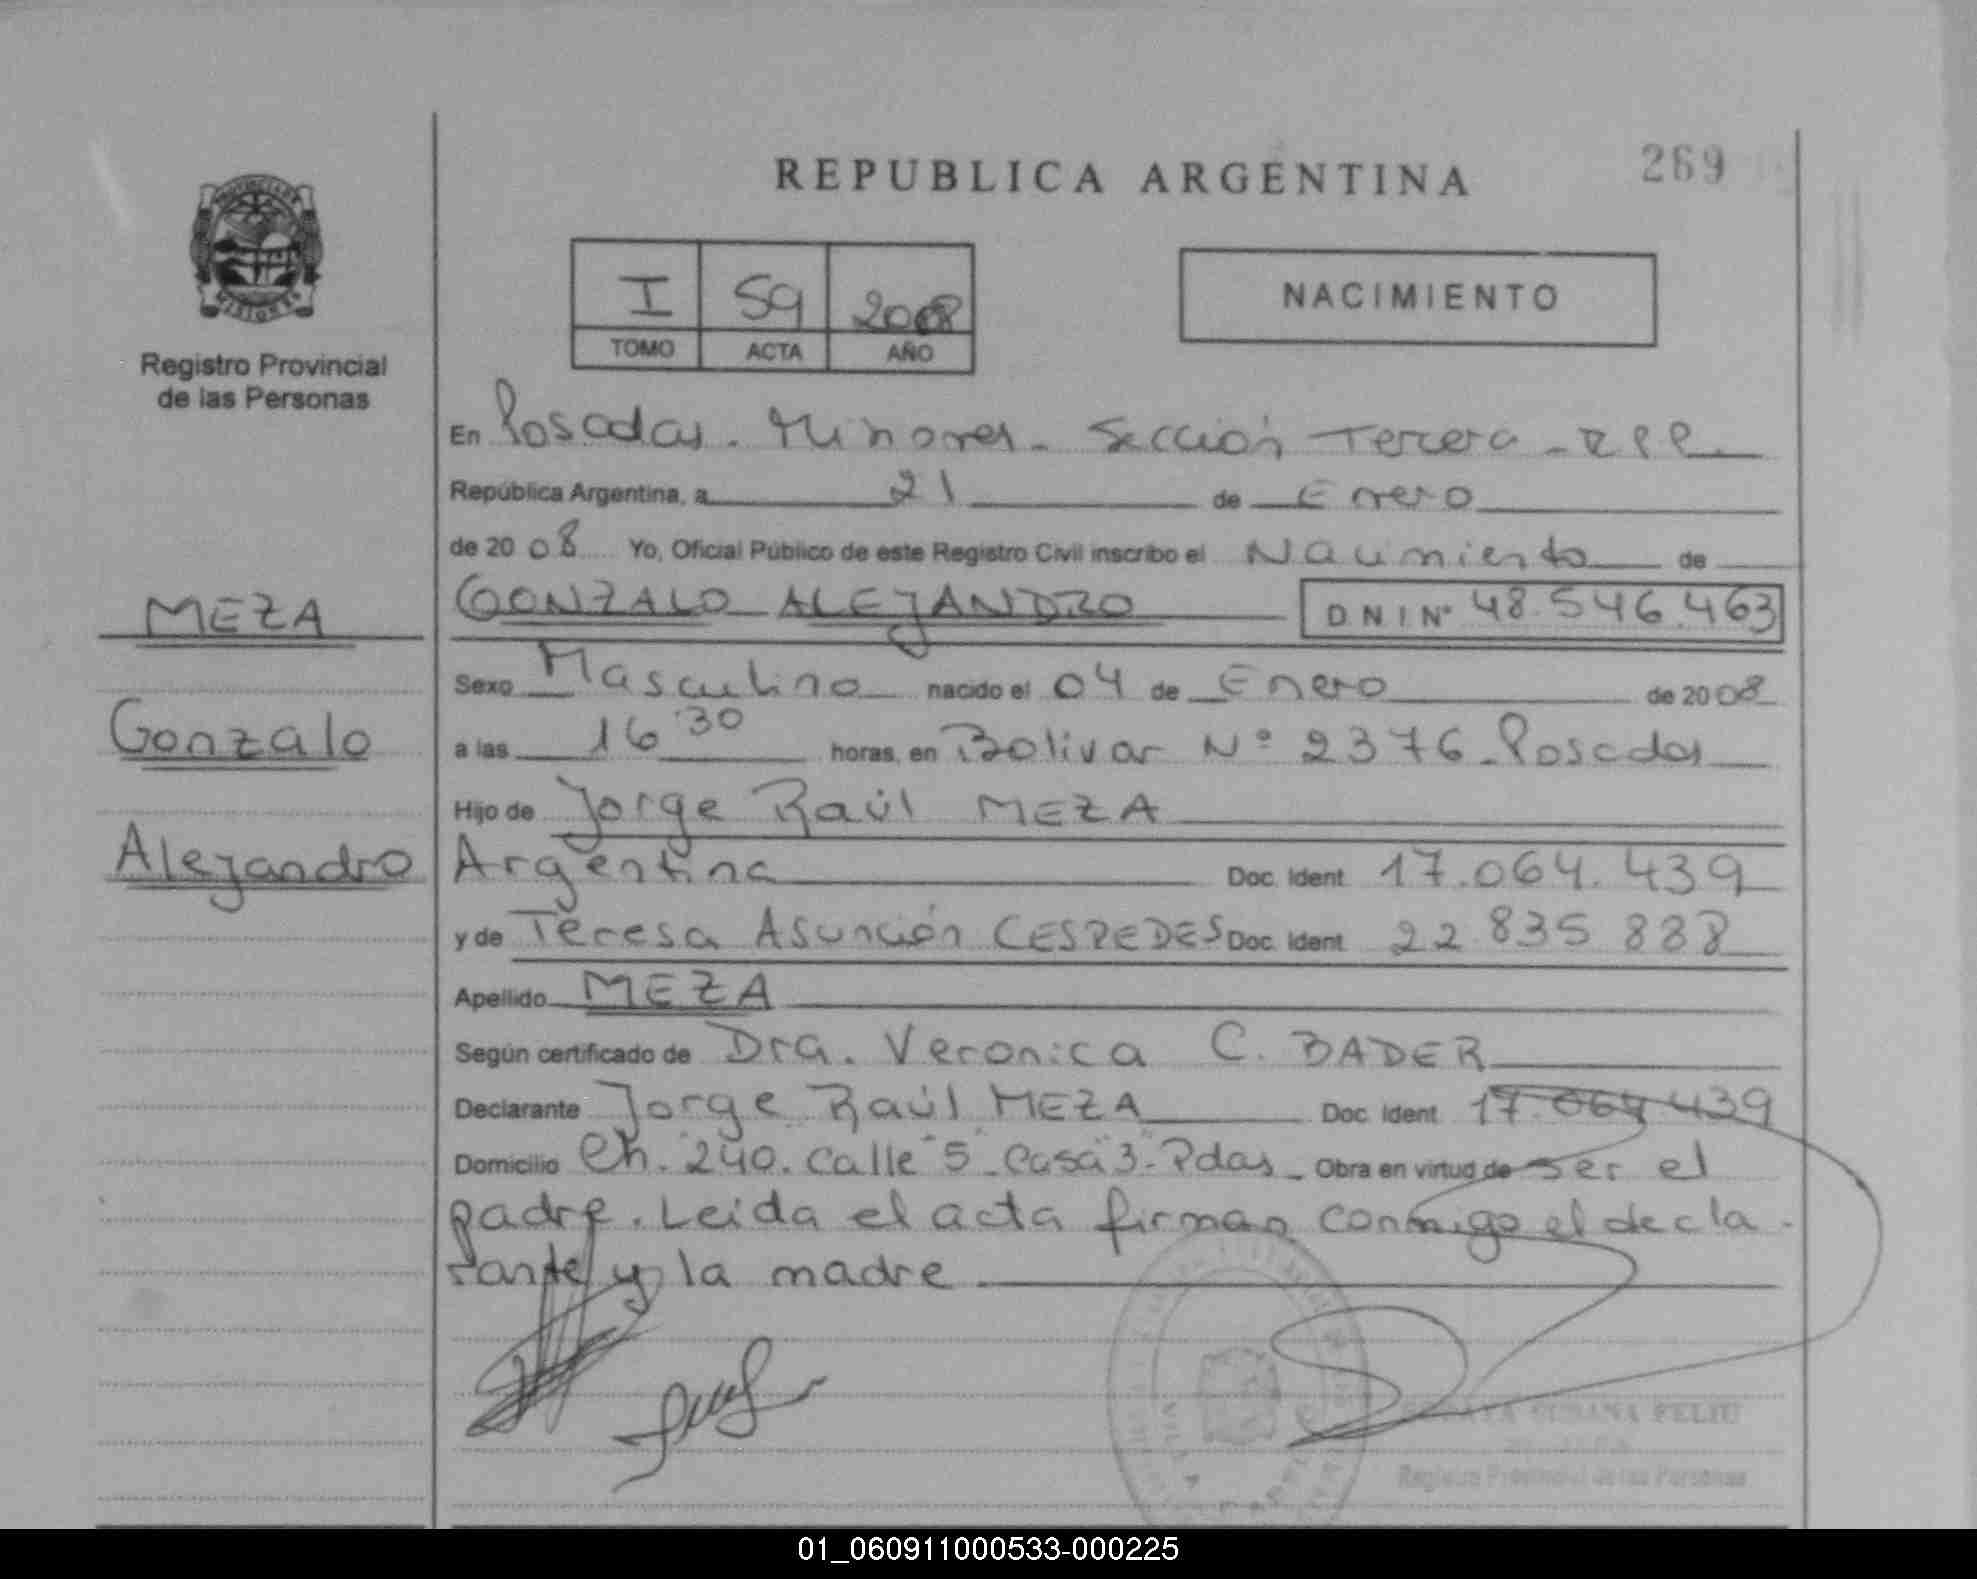 REPUBLICA ARGENTINA
269
I 59 2008
TOMO ACTA AÑO
NACIMIENTO
Registro Provincial
de las Personas
MEZA
Gonzalo
Alejandro
En Posadas - Misiones - Sección Tercera - RPP
República Argentina, a 21 de Enero
de 2008 Yo, Oficial Público de este Registro Civil inscribo el Nacimiento de
GONZALO ALEJANDRO DNI Nº 48.546.463
Sexo Masculino nacido el 04 de Enero de 2008
a las 16 30 horas, en Bolivar Nº 2376 - Posadas
Hijo de Jorge Raúl MEZA
Argentina Doc. Ident 17.064.439
y de Teresa Asunción CESPEDES Doc. Ident 22.835 888
Apellido MEZA
Según certificado de Dra. Veronica C. BADER
Declarante Jorge Raúl MEZA Doc. Ident 17.064 439
Domicilio Ch. 240. Calle "5" Casa "3" - Pdas - Obra en virtud de ser el
padre. Leida el acta firman conmigo el decla -
rante y la madre
SUSANA FELIU
Registro Provincial de las Personas
01_060911000533-000225